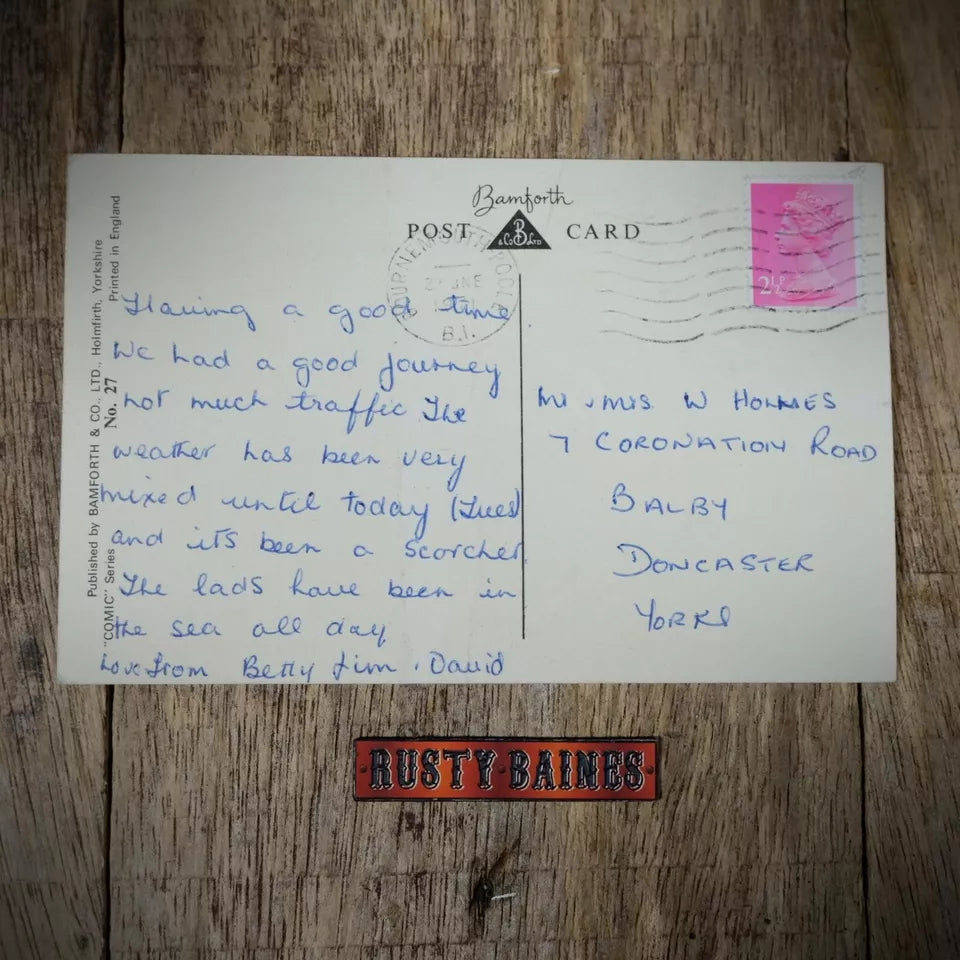 Bamforth
POST CARD
B
& Co LTD
BOURNEMOUTH POOLE
B.I.
2½P
Published by BAMFORTH & CO., LTD., Holmfirth, Yorkshire
"COMIC" Series No. 27 Printed in England
Having a good time
We had a good journey
not much traffic The
weather has been very
mixed until today (Tues)
and its been a scorcher
The lads have been in
the sea all day
Love from Betty Jim . David
Mr & Mrs W HOLMES
7 CORONATION ROAD
BALBY
DONCASTER
YORKS
RUSTY BAINES